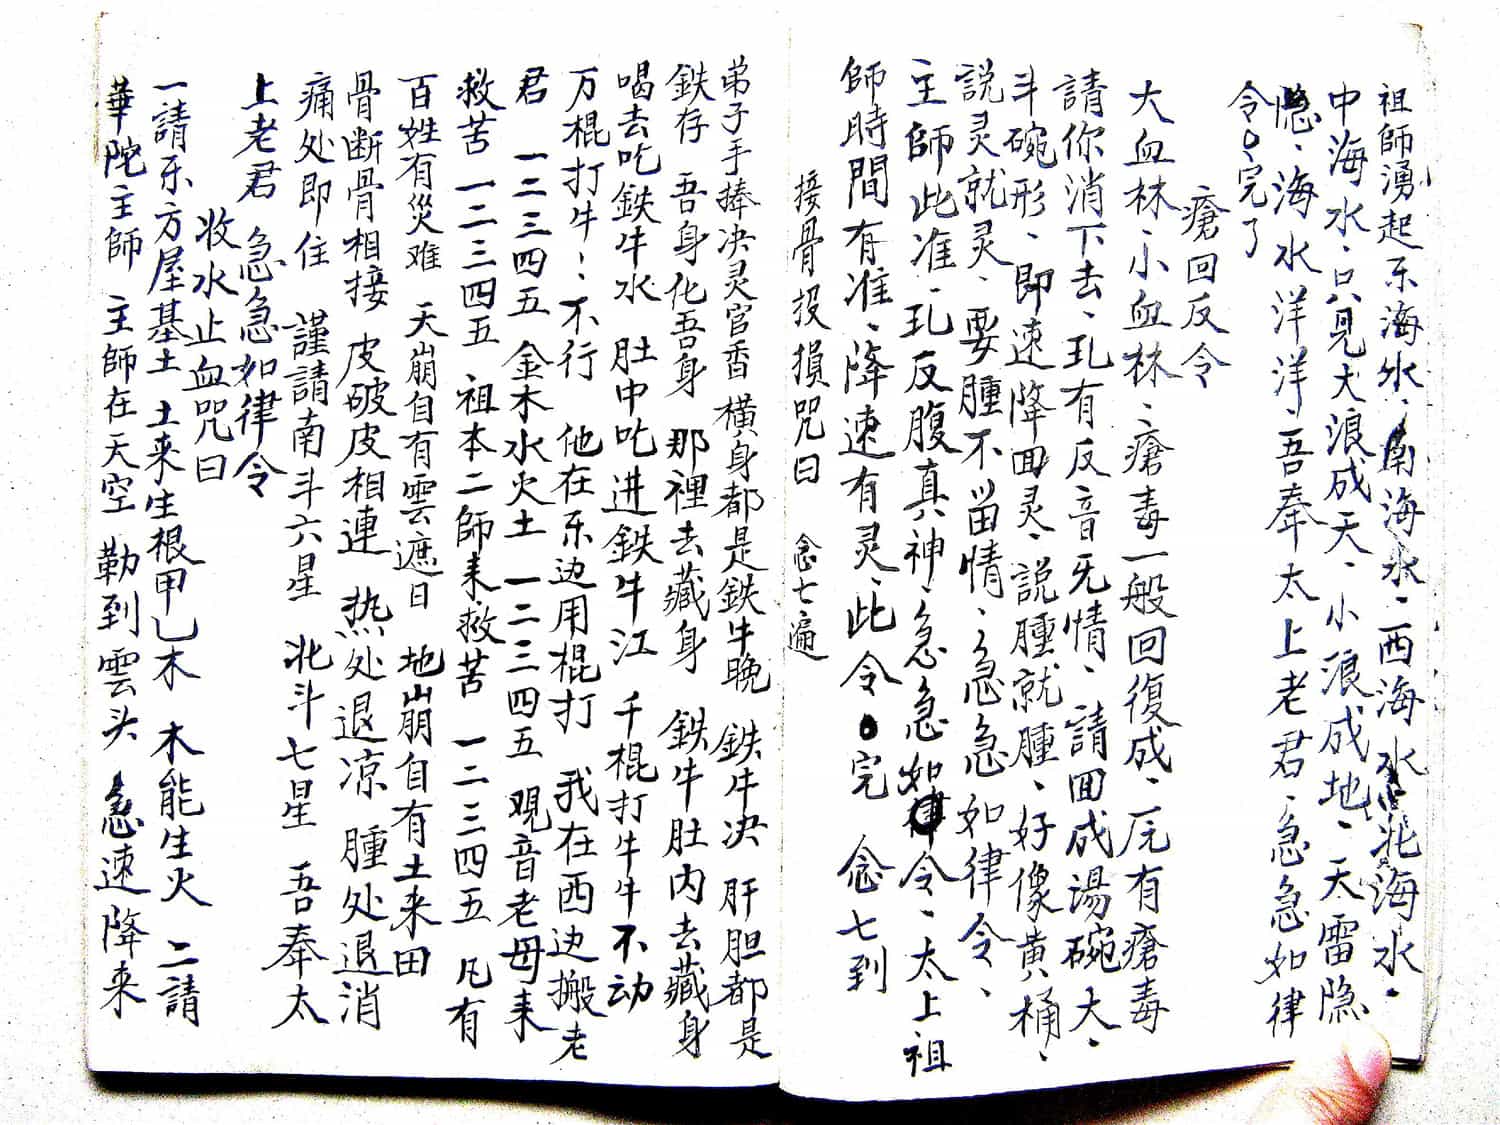 祖師湧起东海水、南海水、西海水、北海水、
中海水、只見大浪成天、小浪成地、天雷隐
隐、海水洋洋、吾奉太上老君、急急如律
令、完了
瘡回反令
大血林、小血林、瘡毒一般回復成、一有瘡毒
請你消下去、孔有反音无情、請回成湯碗大、
斗碗形、即速降回灵、説腫就腫、好像黄桶、
説灵就灵、要腫不留情、急急如律令、
主師此准、孔反腹真神、急急如律令、太上祖
師時間有准、降速有灵、此令 完 念七到
接骨投損咒曰 念七遍
弟子手捧决灵官香 横身都是鉄牛晚 鉄牛决 肝胆都是
鉄存 吾身化吾身 那裡去藏身 鉄牛肚内去藏身
喝去吃鉄牛水 肚中吃进鉄牛江 千棍打牛牛不动
万棍打牛:不行 他在东边用棍打 我在西边搬老
君 一二三四五 金木水火土 一二三四五 观音老母来
救苦 一二三四五 祖本二師来救苦 一二三四五 凡有
百姓有災难 天崩自有雲遮日 地崩自有土来田
骨断骨相接 皮破皮相連 热处退凉 腫处退消
痛处即住 謹請南斗六星 北斗七星 吾奉太
上老君 急急如律令
收水止血咒曰
一請东方屋基土 土来生根甲乙木 木能生火 二請
華陀主師 主師在天空 勒到雲头 急速降来